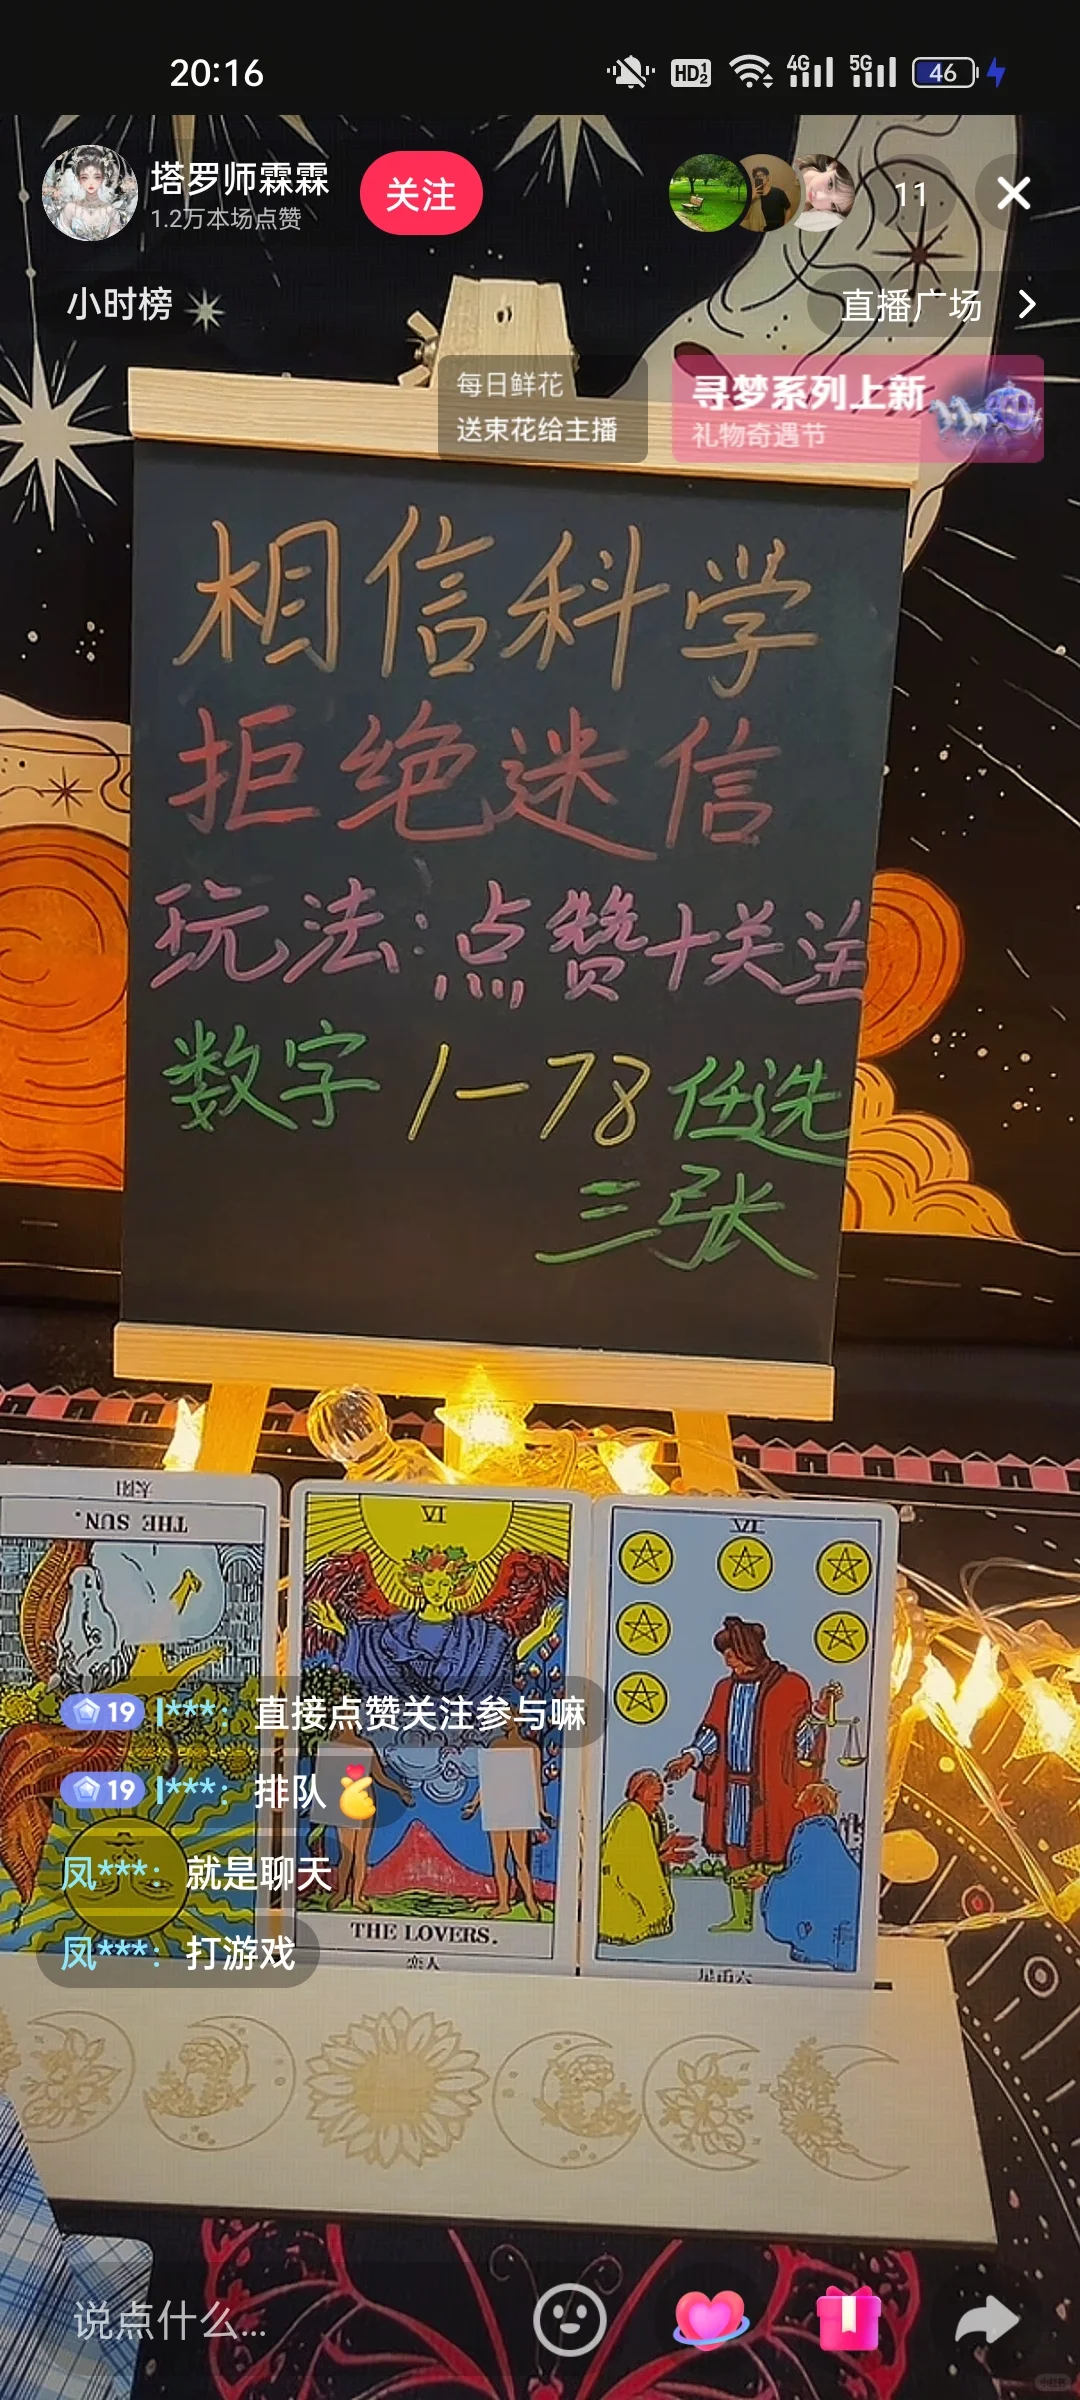 20:16
HD 1 2
4G
5G
46
塔罗师霖霖
1.2万本场点赞
关注
11
小时榜
直播广场
每日鲜花
送束花给主播
寻梦系列上新
礼物奇遇节
相信科学
拒绝迷信
玩法:点赞+关注
数字1-78任选
三张
太阳
THE SUN.
VI
VI
19 l***: 直接点赞关注参与嘛
19 l***: 排队
凤***: 就是聊天
凤***: 打游戏
THE LOVERS.
恋人
星币六
说点什么...